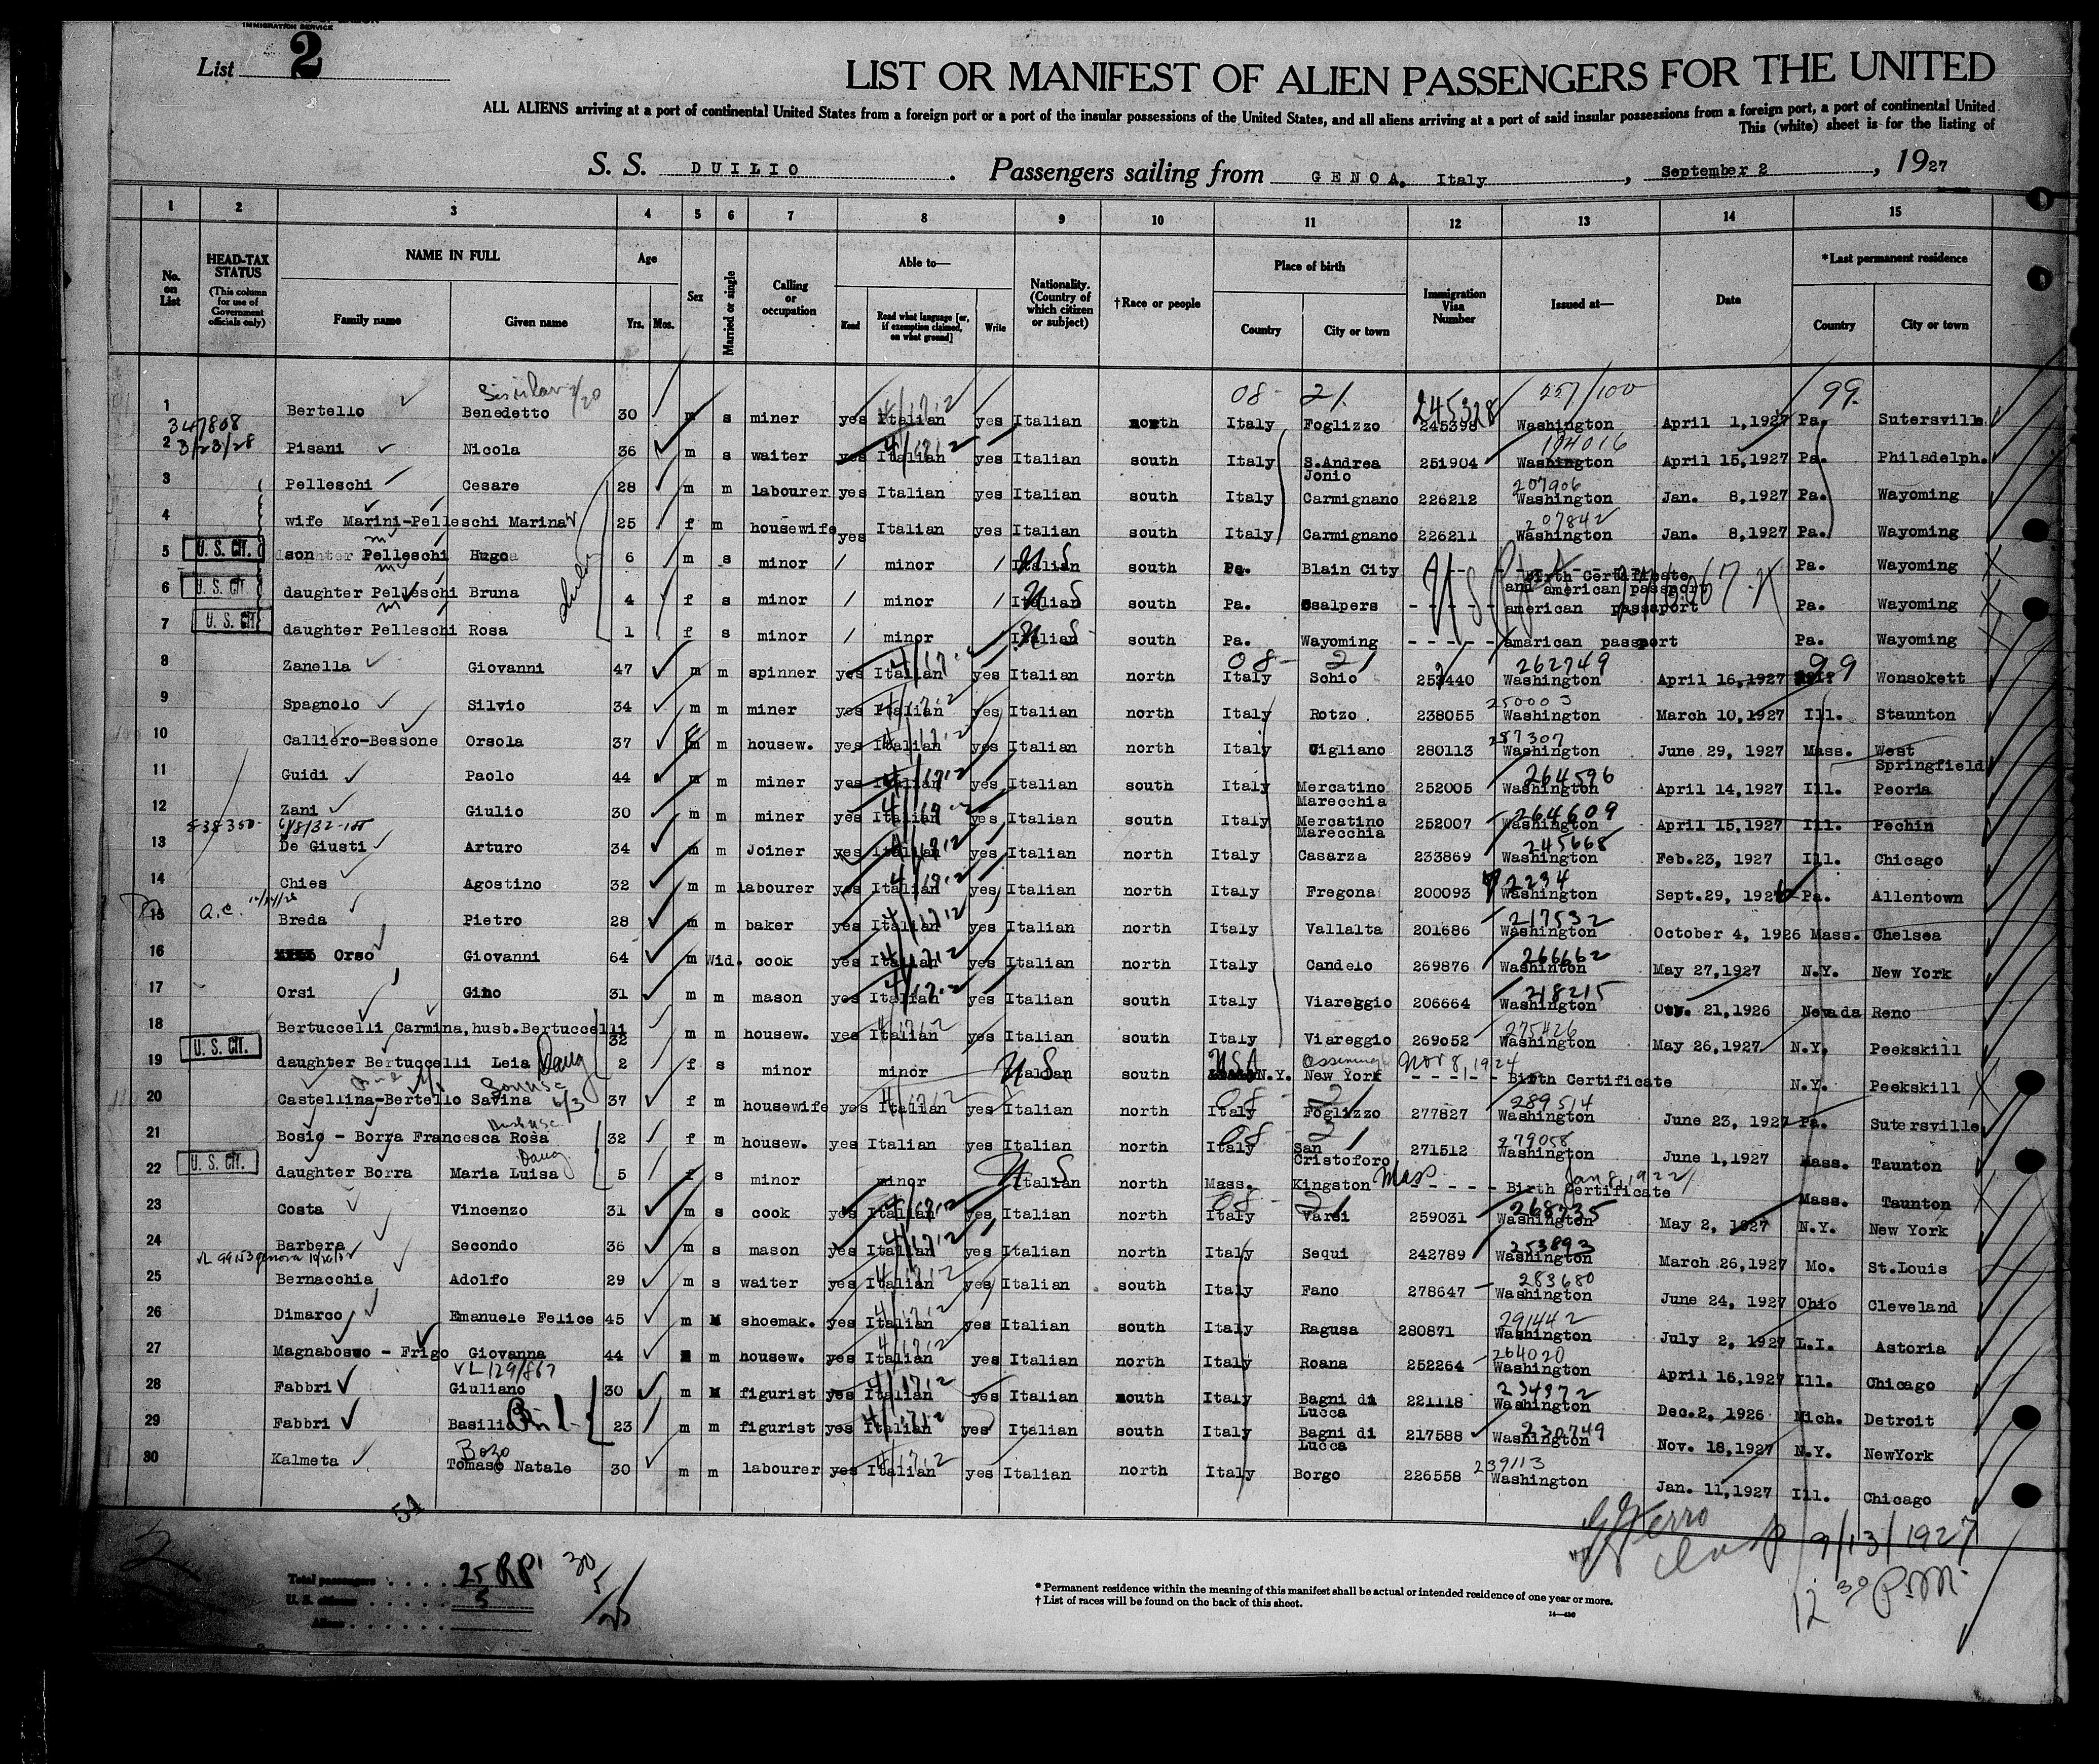 IMMIGRATION SERVICE
List 2
LIST OR MANIFEST OF ALIEN PASSENGERS FOR THE UNITED
ALL ALIENS arriving at a port of continental United States from a foreign port or a port of the insular possessions of the United States, and all aliens arriving at a port of said insular possessions from a foreign port, a port of continental United
This (white) sheet is for the listing of
S. S. DUILIO. Passengers sailing from GENOA, Italy, September 2, 1927
1 2 3 4 5 6 7 8 9 10 11 12 13 14 15
No. on List
HEAD-TAX STATUS (This column for use of Government officials only)
NAME IN FULL Family name Given name
Age Yrs. Mos.
Sex
Married or single
Calling or occupation
Able to— Read Read what language [or, if exemption claimed, on what ground] Write
Nationality. (Country of which citizen or subject)
†Race or people
Place of birth Country City or town
Immigration Visa Number
Issued at—
Date
*Last permanent residence Country City or town
08- 21 245328 257/100 99
1 Bertello Benedetto 30 m s miner yes Italian yes Italian north Italy Foglizzo 245398 Washington April 1,1927 Pa. Sutersville
347808
3/23/28
104016
2 Pisani Nicola 36 m s waiter yes Italian yes Italian south Italy S.Andrea Jonio 251904 Washington April 15,1927 Pa. Philadelph.
207906
3 Pelleschi Cesare 28 m m labourer yes Italian yes Italian south Italy Carmignano 226212 Washington Jan. 8,1927 Pa. Wayoming
207842
4 wife Marini-Pelleschi Marina 25 f m housewife yes Italian yes Italian south Italy Carmignano 226211 Washington Jan. 8,1927 Pa. Wayoming
5 U. S. CIT. son Pelleschi Hugo 6 m s minor / minor / Italian U S south Pa. Blain City Birth Certificate and american passport Pa. Wayoming
6 U. S. CIT. daughter Pelleschi Bruna 4 f s minor / minor / Italian U S south Pa. Csalpers - - - - - american passaport Pa. Wayoming
7 U. S. CIT. daughter Pelleschi Rosa 1 f s minor / minor / Italian U S south Pa. Wayoming - - - - - amarican passport Pa. Wayoming
08- 21 262749 99
8 Zanella Giovanni 47 m m spinner yes Italian yes Italian north Italy Schio 252440 Washington April 16,1927 Wonsokett
250003
9 Spagnolo Silvio 34 m m miner yes Italian yes Italian north Italy Rotzo 238055 Washington March 10,1927 Ill. Staunton
287307
10 Calliero-Bessone Orsola 37 m housew. yes Italian yes Italian north Italy Cigliano 280113 Washington June 29, 1927 Mass. West Springfield
264596
11 Guidi Paolo 44 m m miner yes Italian yes Italian south Italy Mercatino Marecchia 252005 Washington April 14,1927 Ill. Peoria
264609
12 Zani Giulio 30 m m miner yes Italian yes Italian south Italy Mercatino Marecchia 252007 Washington April 15,1927 Ill. Pechin
245668
13 De Giusti Arturo 34 m m Joiner yes Italian yes Italian north Italy Casarza 233869 Washington Feb.23, 1927 Ill. Chicago
2234
14 Chies Agostino 32 m m labourer yes Italian yes Italian north Italy Fregona 200093 Washington Sept.29, 192 Pa. Allentown
217532
15 Breda Pietro 28 m m baker yes Italian yes Italian north Italy Vallalta 201686 Washington October 4, 1926 Mass. Chelsea
266662
16 Orso Giovanni 64 m wid. cook yes Italian yes Italian north Italy Candelo 269876 Washinton May 27,1927 N.Y. New York
218215
17 Orsi Gino 31 m m mason yes Italian yes Italian south Italy Viareggio 206664 Washington 21,1926 Nevada Reno
275426
18 Bertuccelli Carmina,husb.Bertuccelli 32 m m housew. yes Italian yes Italian south Italy Viareggio 269052 Washington May 26,1927 N.Y. Peekskill
19 U. S. CIT. daughter Bertuccelli Leia Daug 2 f s minor minor Italian U S south USA N.Y. New York Nov 8, 1924 - - - - - Birth Certificate N.Y. Peekskill
08- 2 289514
20 Castellina-Bertello Savina 37 f m housewife yes Italian yes Italian north Italy Foglizzo 277827 Washington June 23, 1927 Pa. Sutersville
08- 21 279058
21 Bosio - Borra Francesca Rosa 32 f m housew. yes Italian yes Italian north Italy San Cristoforo 271512 Washington June 1,1927 Mass. Taunton
22 U. S. CIT. daughter Borra Maria Luisa Daug. 5 f s minor minor Italian U S north Mass. Kingston Mass - - - - - Birth Certificate Jan 8, 1922 Mass. Taunton
08- 21 268735
23 Costa Vincenzo 31 m s cook yes Italian yes Italian north Italy Varsi 259031 Washington May 2, 1927 N.Y. New York
253893
24 Barbera Secondo 36 m s mason yes Italian yes Italian north Italy Sequi 242789 Washington March 26,1927 Mo. St.Louis
283680
25 Bernacchia Adolfo 29 m s waiter yes Italian yes Italian south Italy Fano 278647 Washington June 24, 1927 Ohio Cleveland
291442
26 Dimarco Emanuele Felice 45 m M shoemak. yes Italian yes Italian south Italy Ragusa 280871 Washington July 2, 1927 L.I. Astoria
264020
27 Magnabosco - Frigo Giovanna 44 m housew. yes Italian yes Italian north Italy Roana 252264 Washington April 16,1927 Ill. Chicago
VL 129/867
234372
28 Fabbri Giuliano 30 m M figurist yes Italian yes Italian south Italy Bagni di Lucca 221118 Washington Dec.2, 1926 Mich. Detroit
230749
29 Fabbri Basilio 23 m m figurist yes Italian yes Italian south Italy Bagni di Lucca 217588 Washington Nov. 18,1927 N.Y. NewYork
Bozo 239113
30 Kalmeta Tomaso Natale 30 m m labourer yes Italian yes Italian north Italy Borgo 226558 Washington Jan. 11,1927 Ill. Chicago
54
9/13/1927
12 30 P.M.
Total passengers . . . . 25 30
U. S. citizens . . . . . 5 5
Aliens . . . . . . 25
* Permanent residence within the meaning of this manifest shall be actual or intended residence of one year or more.
† List of races will be found on the back of this sheet.